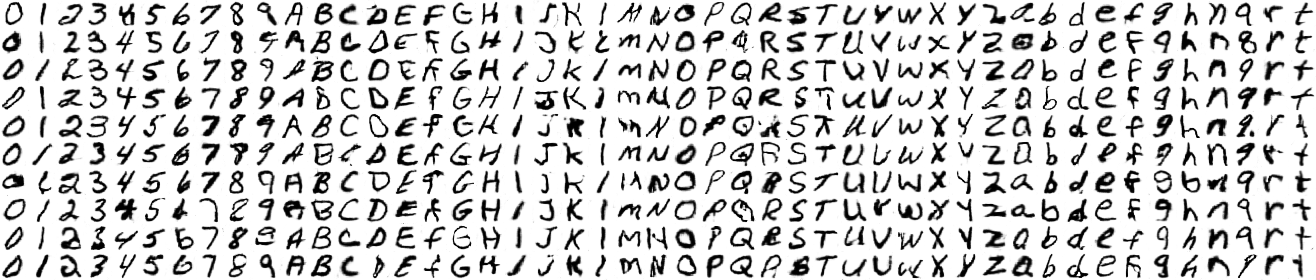 0 1 2 3 4 5 6 7 8 9 A B C D E F G H I J K L M N O P Q R S T U V W X Y Z a b d e f g h n q r t
0 1 2 3 4 5 6 7 8 9 A B C D E F G H I J K L M N O P Q R S T U V W X Y Z a b d e f g h n q r t
0 1 2 3 4 5 6 7 8 9 A B C D E F G H I J K L M N O P Q R S T U V W X Y Z a b d e f g h n q r t
0 1 2 3 4 5 6 7 8 9 A B C D E F G H I J K L M N O P Q R S T U V W X Y Z a b d e f g h n q r t
0 1 2 3 4 5 6 7 8 9 A B C D E F G H I J K L M N O P Q R S T U V W X Y Z a b d e f g h n q r t
0 1 2 3 4 5 6 7 8 9 A B C D E F G H I J K L M N O P Q R S T U V W X Y Z a b d e f g h n q r t
0 1 2 3 4 5 6 7 8 9 A B C D E F G H I J K L M N O P Q R S T U V W X Y Z a b d e f g h n q r t
0 1 2 3 4 5 6 7 8 9 A B C D E F G H I J K L M N O P Q R S T U V W X Y Z a b d e f g h n q r t
0 1 2 3 4 5 6 7 8 9 A B C D E F G H I J K L M N O P Q R S T U V W X Y Z a b d e f g h n q r t
0 1 2 3 4 5 6 7 8 9 A B C D E F G H I J K L M N O P Q R S T U V W X Y Z a b d e f g h n q r t